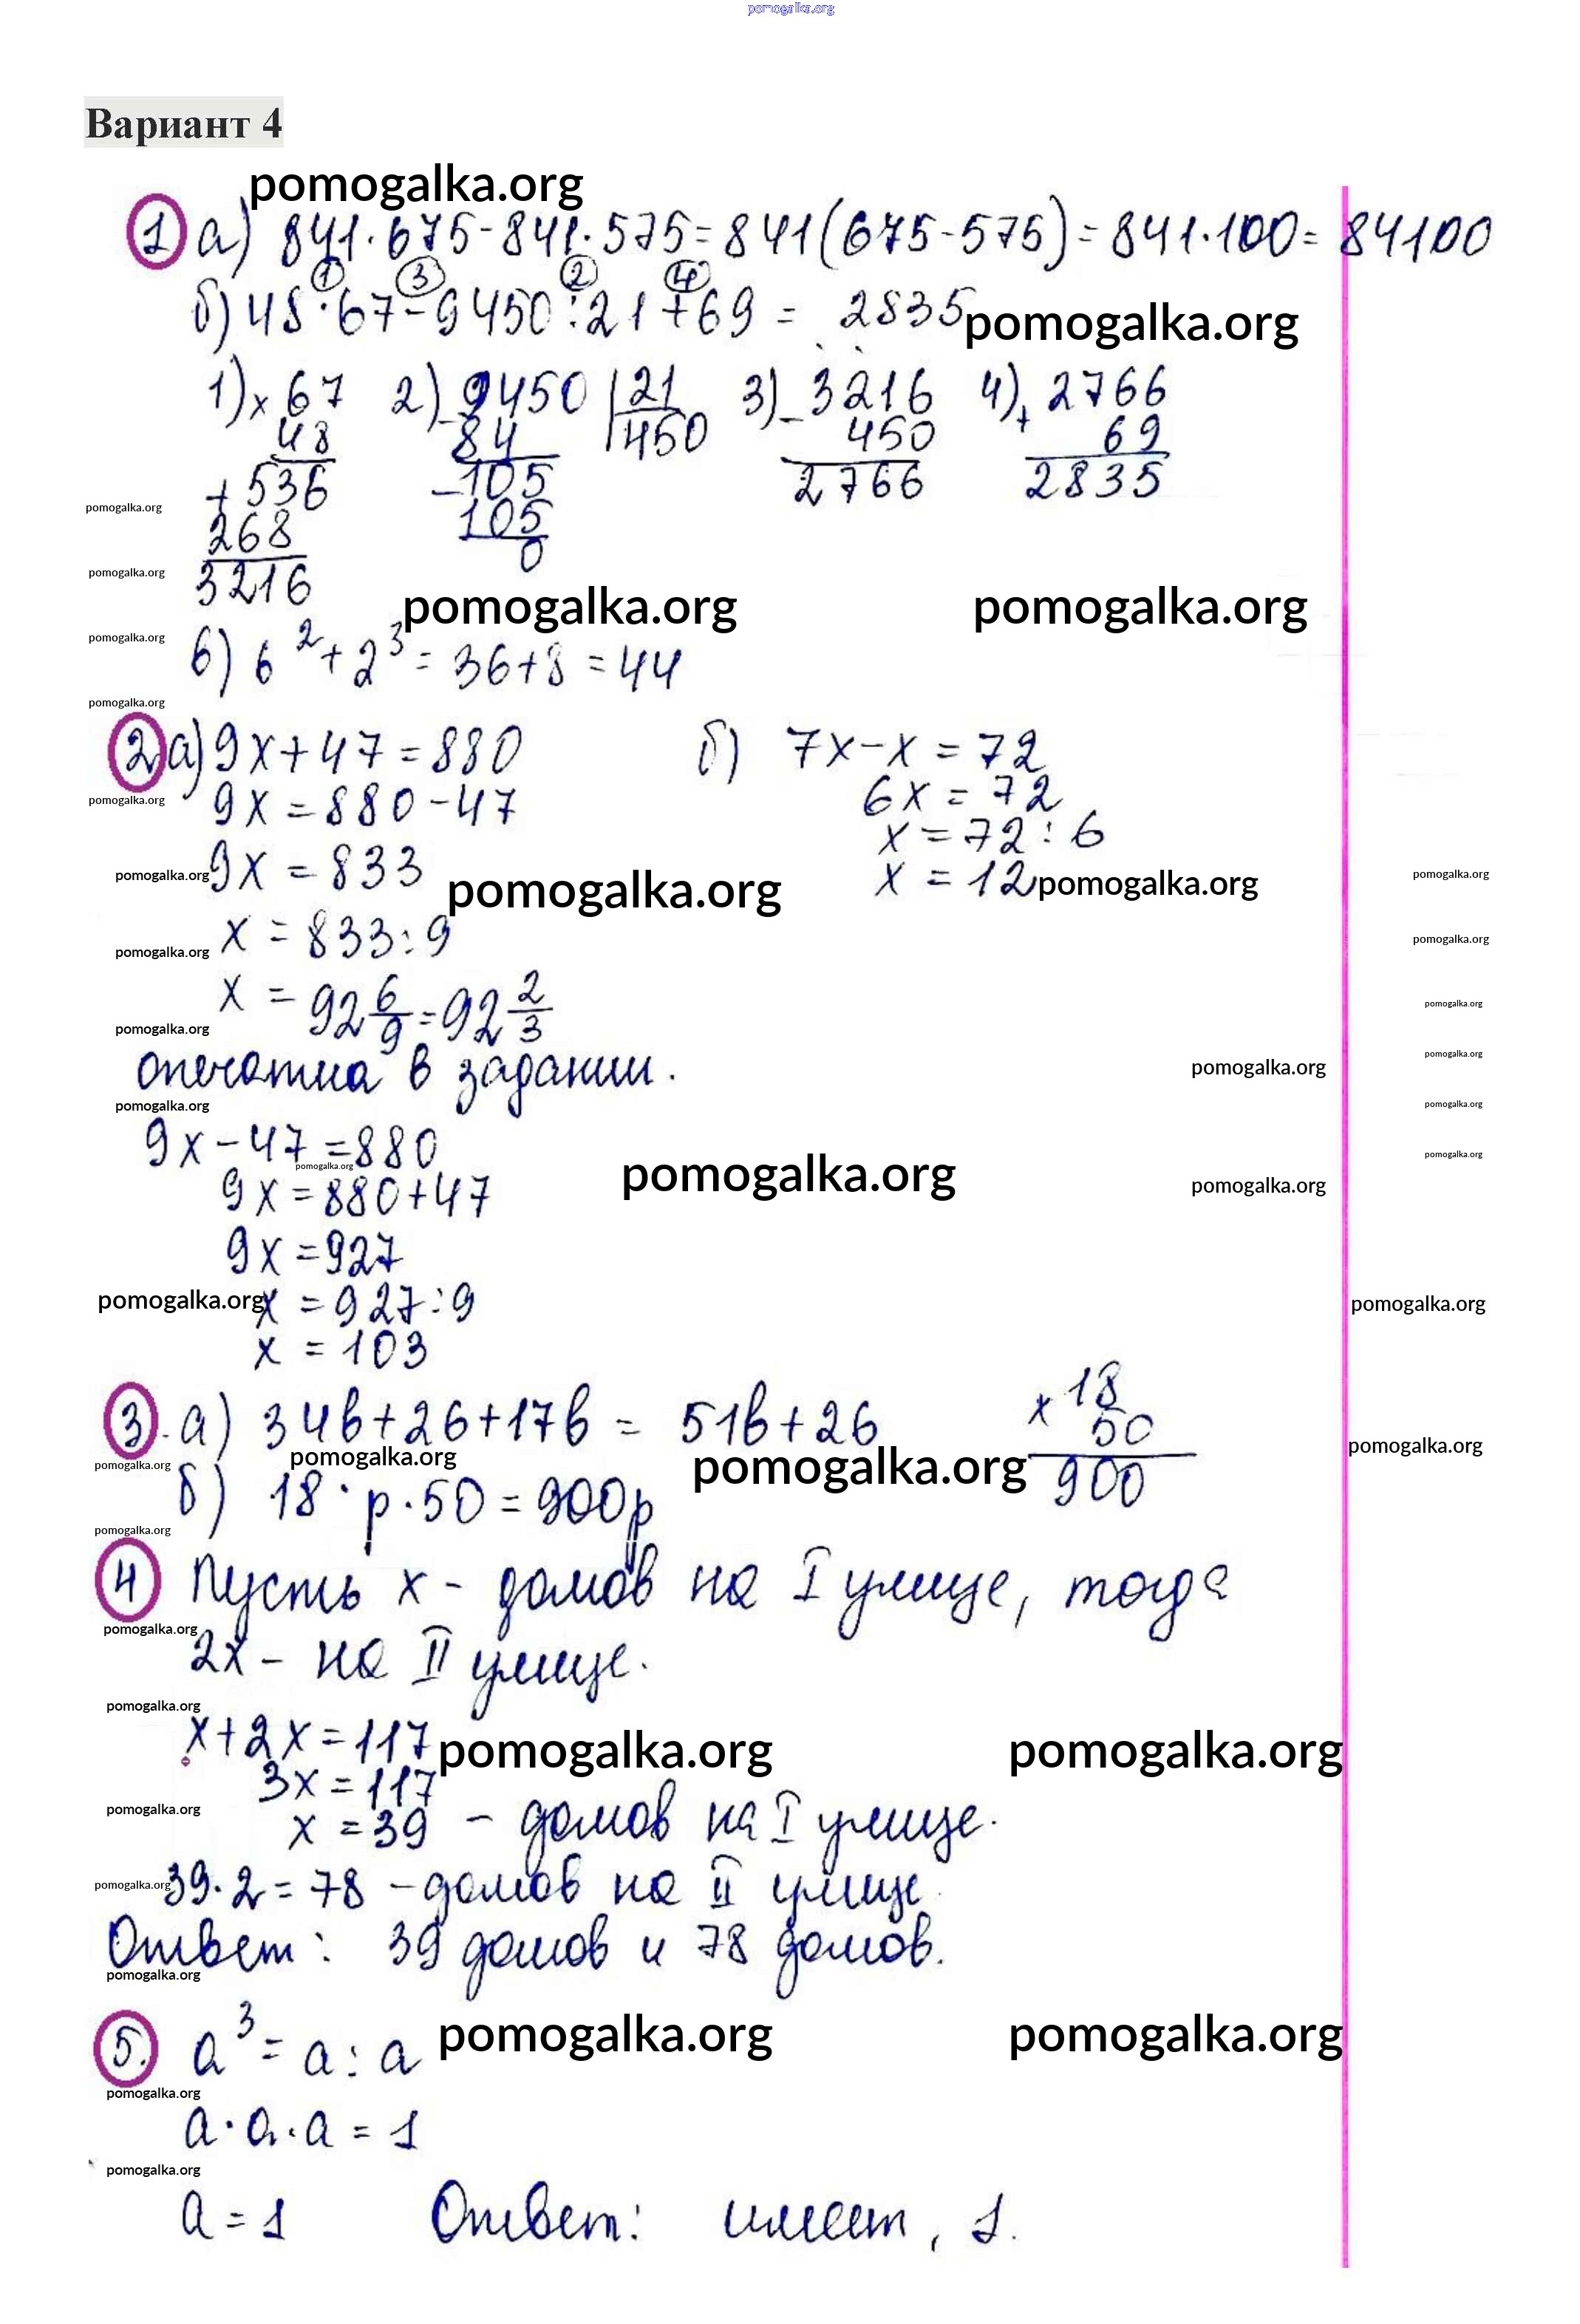 pomogalka.org
Вариант 4
pomogalka.org
1 а) 841·675-841·575=841(675-575)=841·100=84100
① ③ ② ④
б) 48·67-9450:21+69 = 2835 pomogalka.org
1) × 67 2) - 9450 | 21 3) - 3216 4) + 2766
48 84 450 450 69
+ 536 - 105 2766 2835
pomogalka.org 105
268 0
pomogalka.org
3216
pomogalka.org pomogalka.org
pomogalka.org в) 6²+2³=36+8=44
pomogalka.org
2 а) 9x+47=880 б) 7x-x=72
pomogalka.org 9x=880-47 6x=72
x=72:6
pomogalka.org 9x=833 pomogalka.org x=12 pomogalka.org pomogalka.org
pomogalka.org x=833:9 pomogalka.org
x=92 6/9=92 2/3 pomogalka.org
pomogalka.org
опечатка в задании. pomogalka.org pomogalka.org
pomogalka.org pomogalka.org
9x-47=880 pomogalka.org
pomogalka.org pomogalka.org
9x=880+47 pomogalka.org
9x=927
pomogalka.org x=927:9 pomogalka.org
x=103
3. а) 34в+26+17в = 51в+26 × 18
50
pomogalka.org pomogalka.org pomogalka.org 900 pomogalka.org
б) 18·p·50=900p
pomogalka.org
4 Пусть x - домов на I улице, тогда
pomogalka.org
2x - на II улице.
pomogalka.org
x+2x=117 pomogalka.org pomogalka.org
3x=117
pomogalka.org x=39 - домов на I улице.
pomogalka.org 39·2=78 - домов на II улице
Ответ: 39 домов и 78 домов.
pomogalka.org
5. a³=a:a pomogalka.org pomogalka.org
pomogalka.org
a·a·a=1
pomogalka.org
a=1 Ответ: имеет, 1.